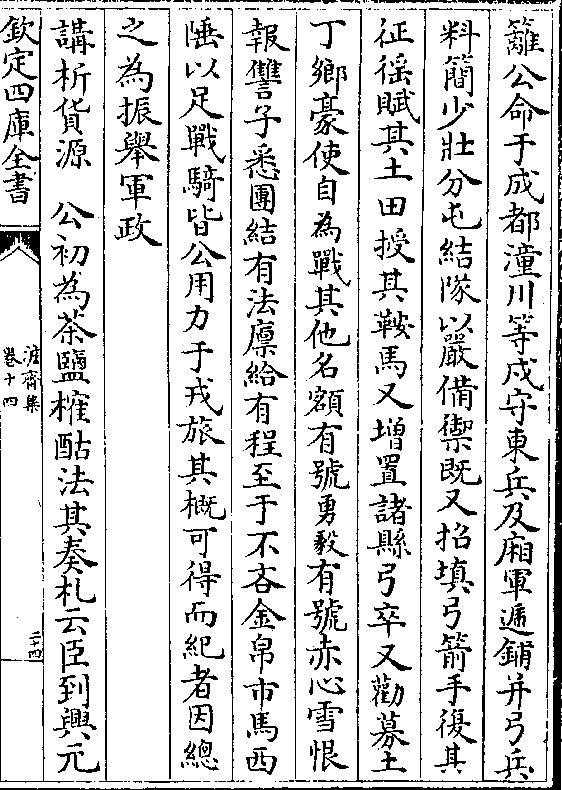 籬公命于成都潼川等戍守東兵及廂軍遞鋪并弓兵
料簡少壯分屯結隊以嚴備禦既又招填弓箭手復其
征徭賦其土田授其鞍馬又增置諸縣弓卒又勸募土
丁鄉豪使自為戰其他名額有號勇毅有號赤心雪恨
報讐子悉團結有法廪給有程至于不吝金帛市馬西
陲以足戰騎皆公用力于戎旅其概可得而紀者因總
之為振舉軍政
講析貨源　公初為茶鹽榷酤法其奏札云臣到興元
欽定四庫全書
卷十四
二十四